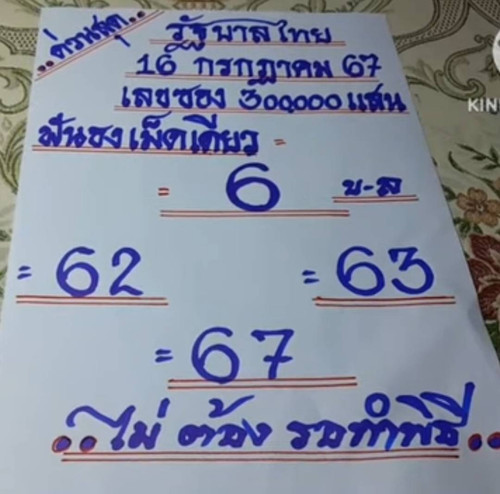 ..ด่วนสุด..
รัฐบาลไทย
16 กรกฎาคม 67
เลขซอง 300000 แสน
ฟันธง เม็ดเดียว =
= 6 บ-ล
= 62 = 63
= 67
..ไม่ ต้อง รอทำพิธี..
KIN